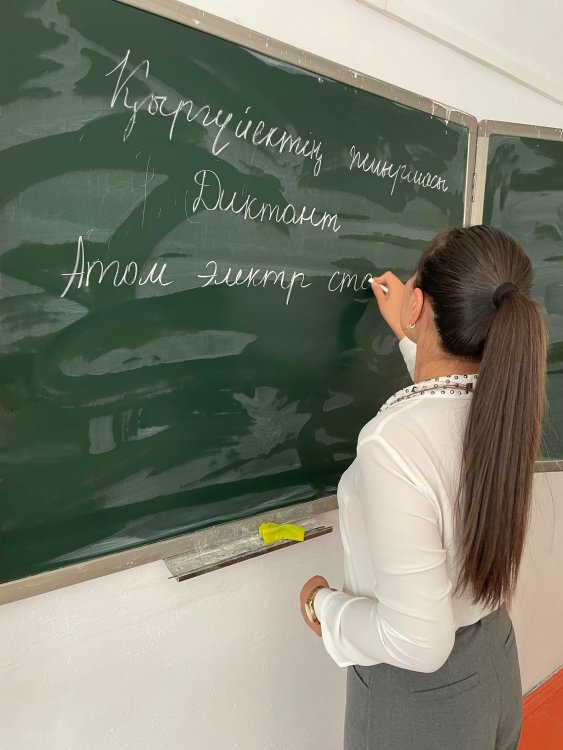 Қыргүйектің жиырмасы
Диктант
Атом электр ста